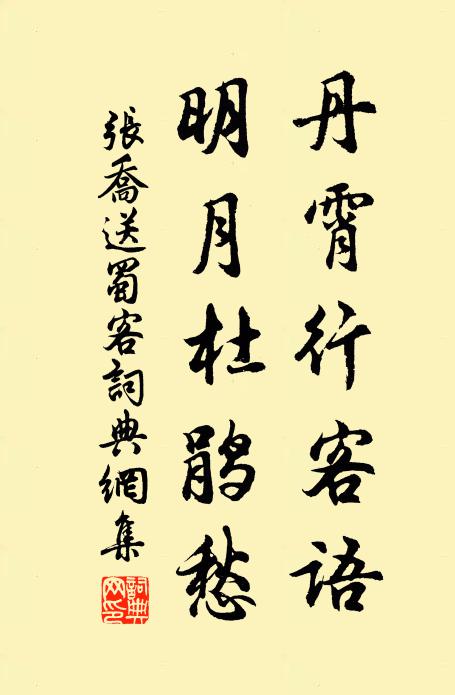 丹霄行客語
明月杜鹃愁
張喬送蜀客詞典網集
詞典网印